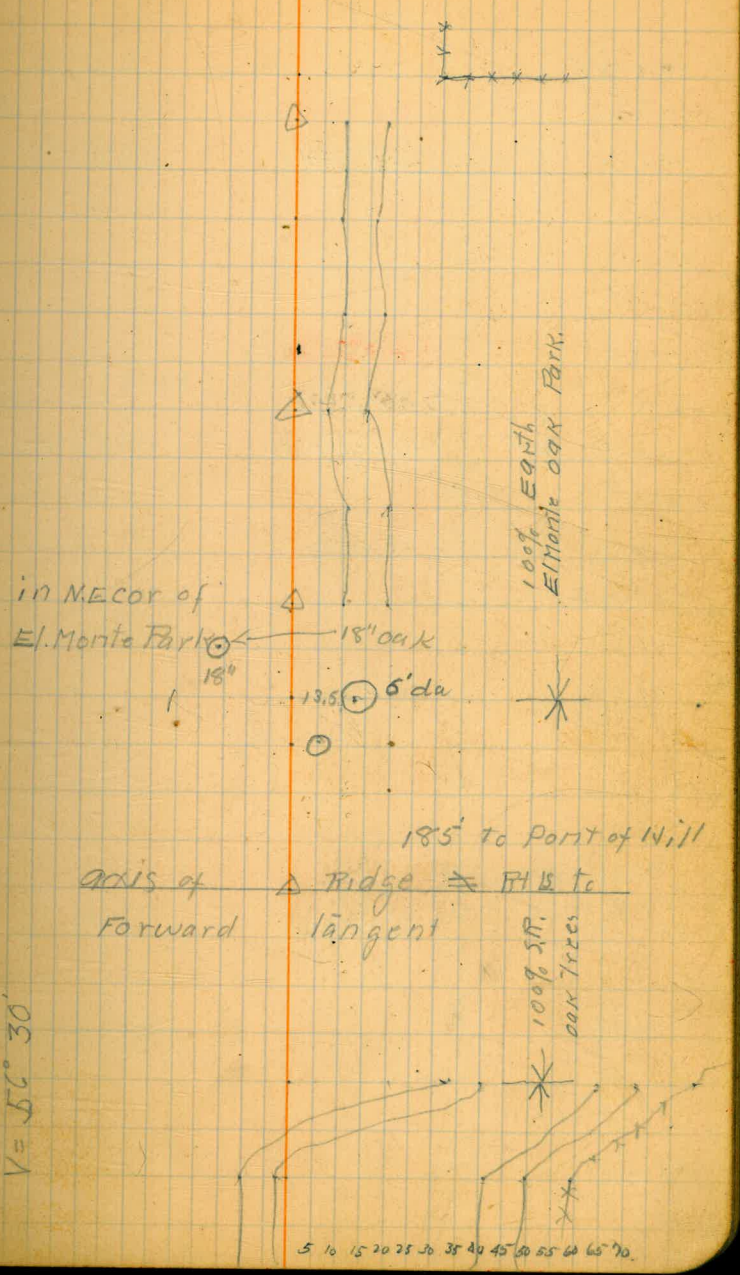 100% Earth
El Monte Oak Park.
in N.E cor of
El. Monte Park
18" oak
18"
13.5
6' da
185' to Point of Hill
axis of Ridge = Rt Ls to
Forward Tangent
100% S.R.
oak Trees
5 10 15 20 25 30 35 40 45 50 55 60 65 70